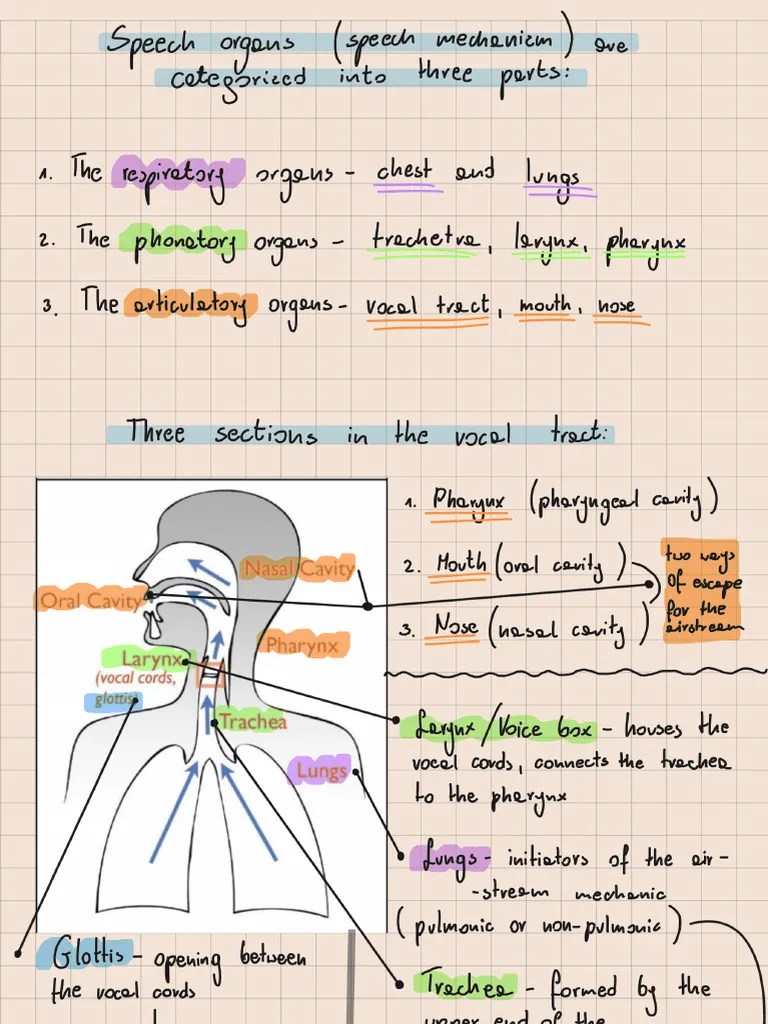 Speech organs (speech mechanism) are
categorized into three parts:
1. The respiratory organs - chest and lungs
2. The phonatory organs - trachetra, larynx, pharynx
3. The articulatory organs - vocal tract, mouth, nose
Three sections in the vocal tract:
Nasal Cavity
Oral Cavity
Pharynx
Larynx
(vocal cords,
glottis)
Trachea
Lungs
1. Pharynx (pharyngeal cavity)
2. Mouth (oral cavity)
3. Nose (nasal cavity)
two ways
of escape
for the
airstream
Larynx/Voice box - houses the
vocal cords, connects the trachea
to the pharynx
Lungs - initiators of the air-
-stream mechanic
(pulmonic or non-pulmonic)
Glottis - opening between
the vocal cords
Trachea - formed by the
upper end of the